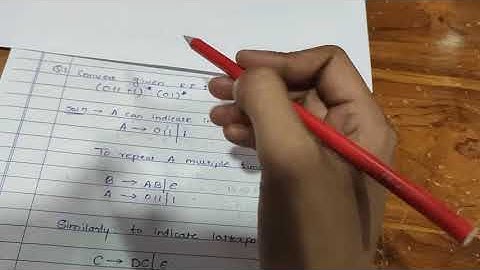 Q1 Convert given R.E
(011+1)* (01)*
Soln → A can indicate
A → 011|1
To repeat A multiple
B → AB|ε
A → 011|1
Similarly to indicate
C → DC|ε